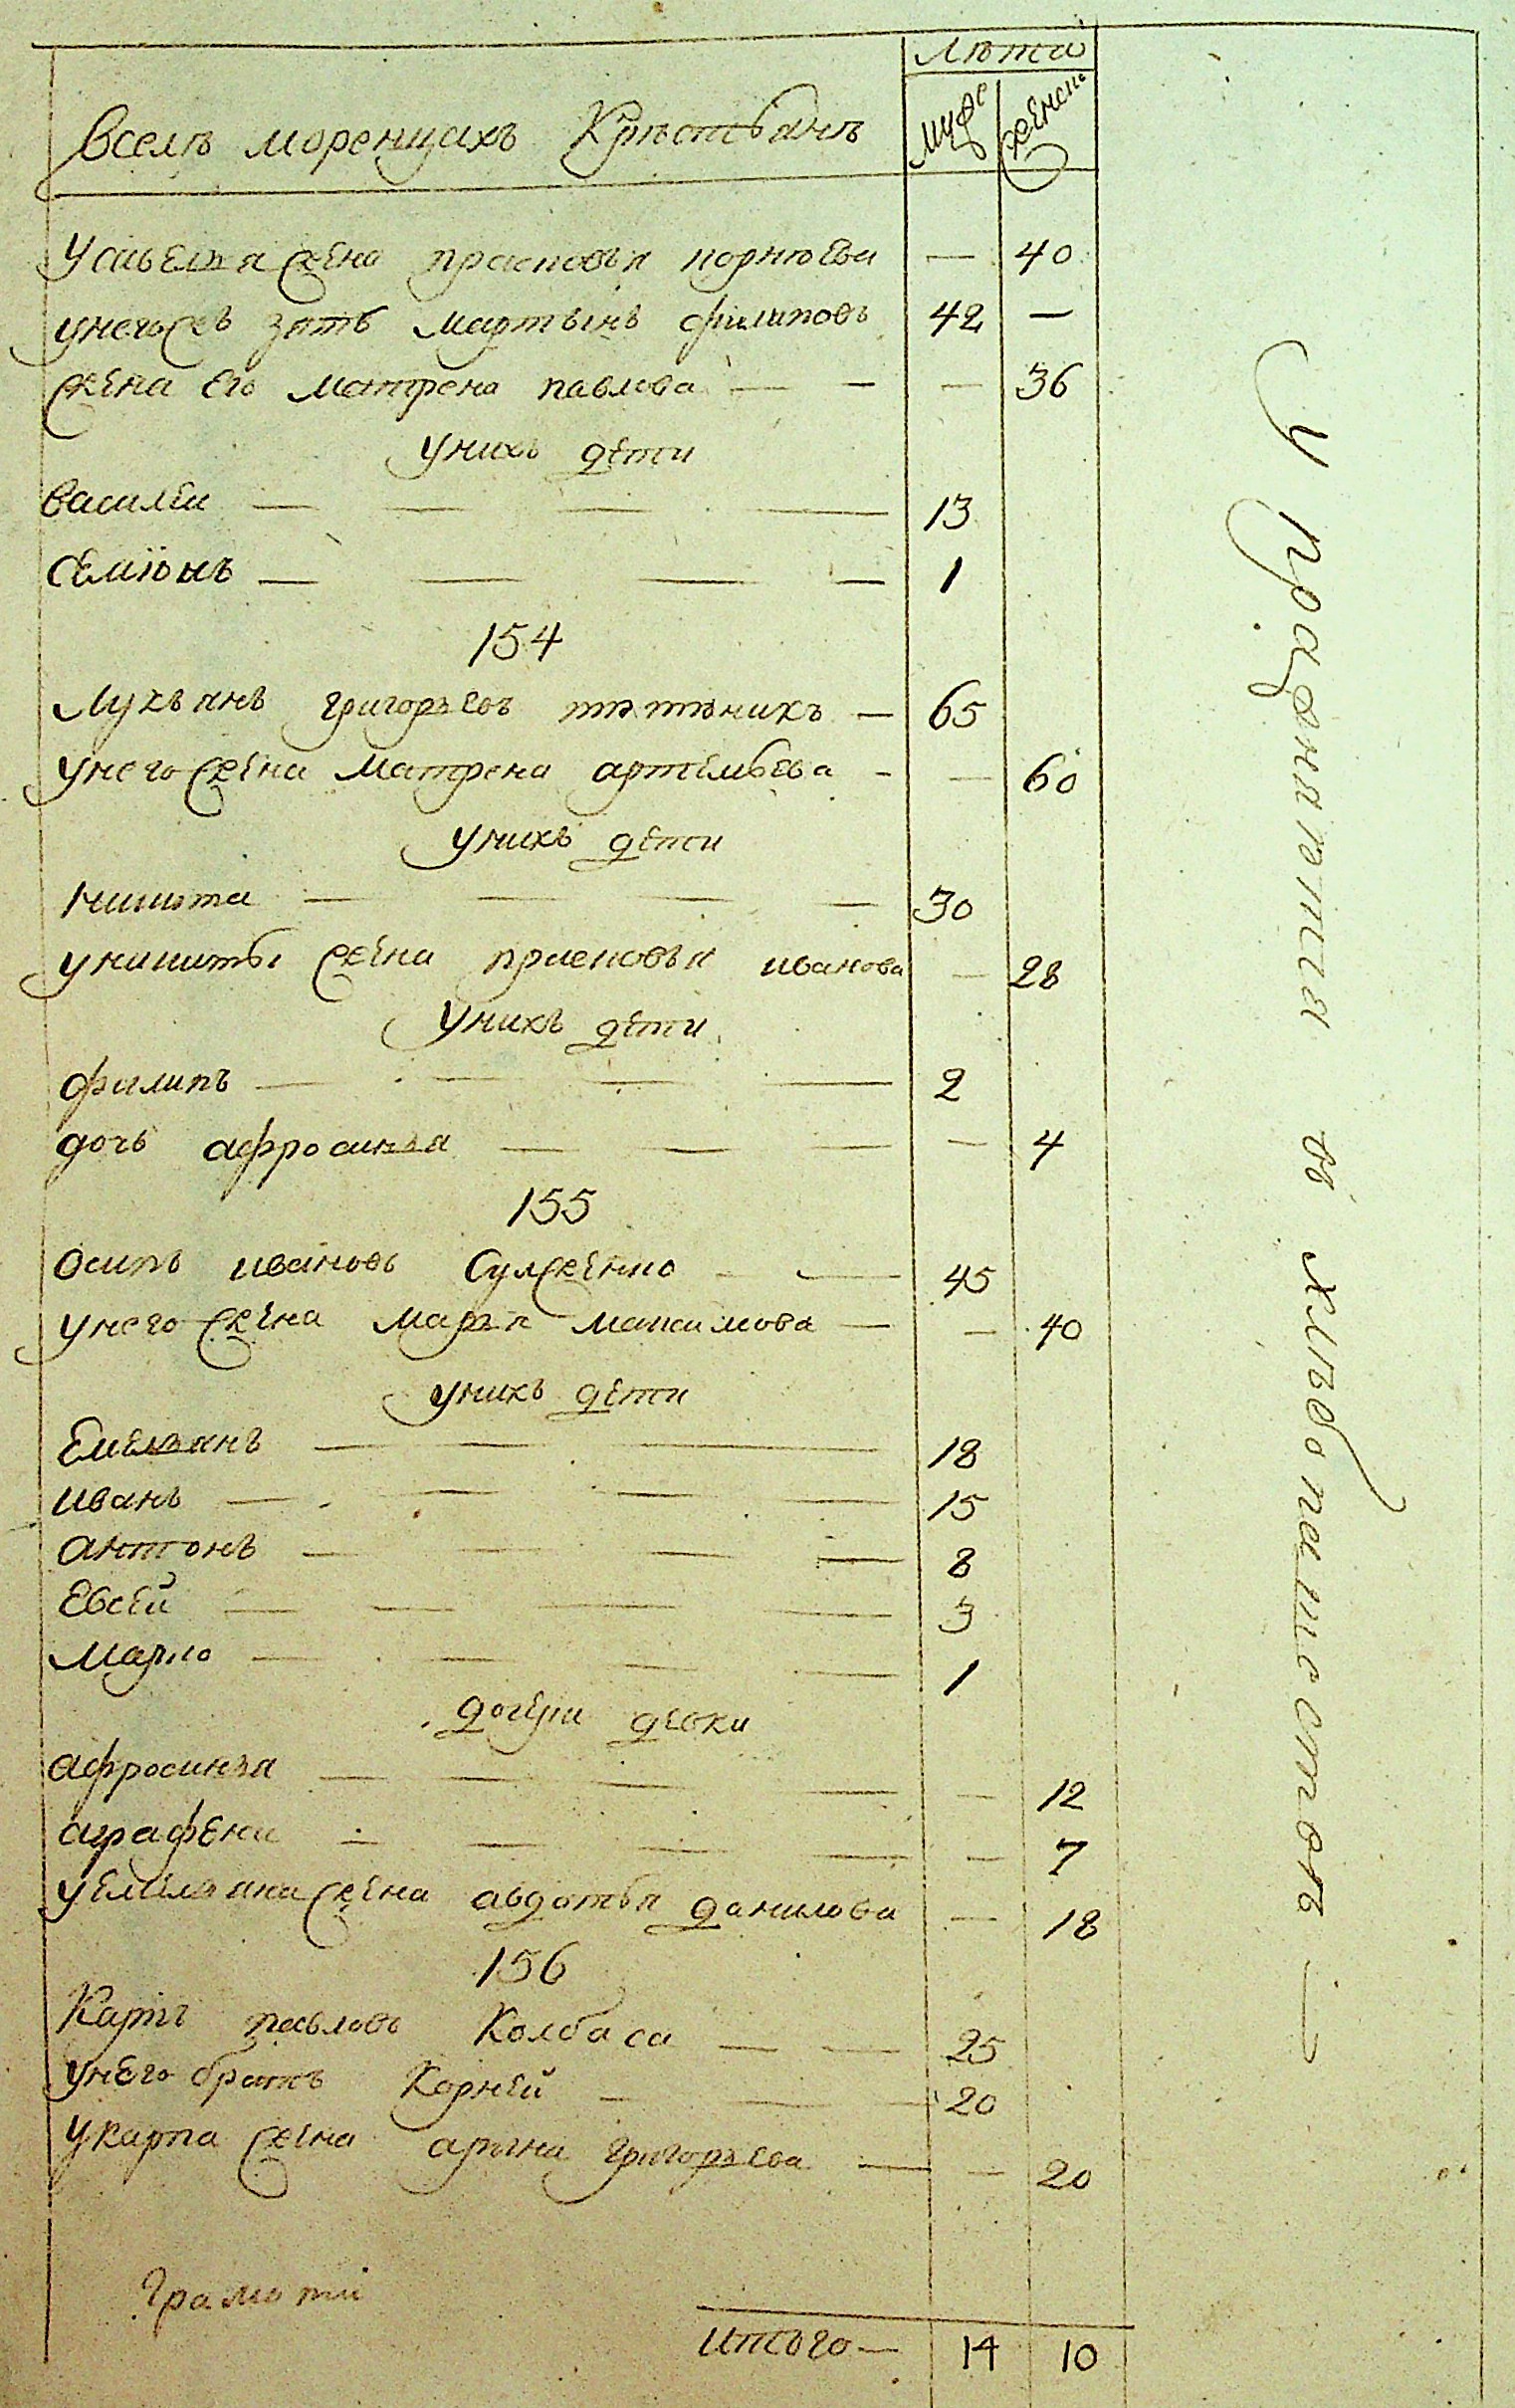 лѣта
Вселѣ моренцахъ Крѣстьянъ
муже
женска
Усавелия жена прасковья корнѣева — 40
унегожъ зять мартынъ филиповъ 42 —
жена его матрена павлова — — — 36
унихъ дети
василеи — — — — 13
семионъ — — — — 1
154
Лукьянъ григорьевъ — 65
унего жена матрена артемьева - — 60
унихъ дети
никита — — — — 30
уникиты жена прасковья иванова — 28
унихъ дети
филипъ — — — — 2
дочь афросинья — — — — 4
155
Осипъ ивановъ Сулженко — — 45
унего жена марья максимова — — 40
унихъ дети
Емельянъ — — — — 18
иванъ — — — — 15
антонъ — — — — 8
Евсей — — — — 3
марко — — — — 1
дочери девки
афросинья — — — — — 12
аграфена — — — — — 7
уемельяна жена авдотья данилова — 18
156
Карпъ павловъ Колбаса — — 25
унего братъ Корней — — — 20
укарпа жена арина григорьева — — 20
итого — 14 10
упражняется въ хлѣбопашествѣ —